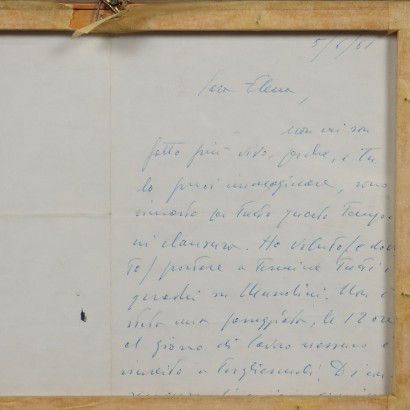 5/5/61
Cara Elena,
non mi son
fatto più vivo, perché, e Tu
lo puoi immaginare, sono
rimasto per tutto questo Tempo
in clausura. Ho voluto (e dovu
to) portare a termine tutti i
quadri su Mussolini. Non è
stata una passeggiata, le 12 ore
al giorno di lavoro nessuno è
riuscito a togliermeli. Di